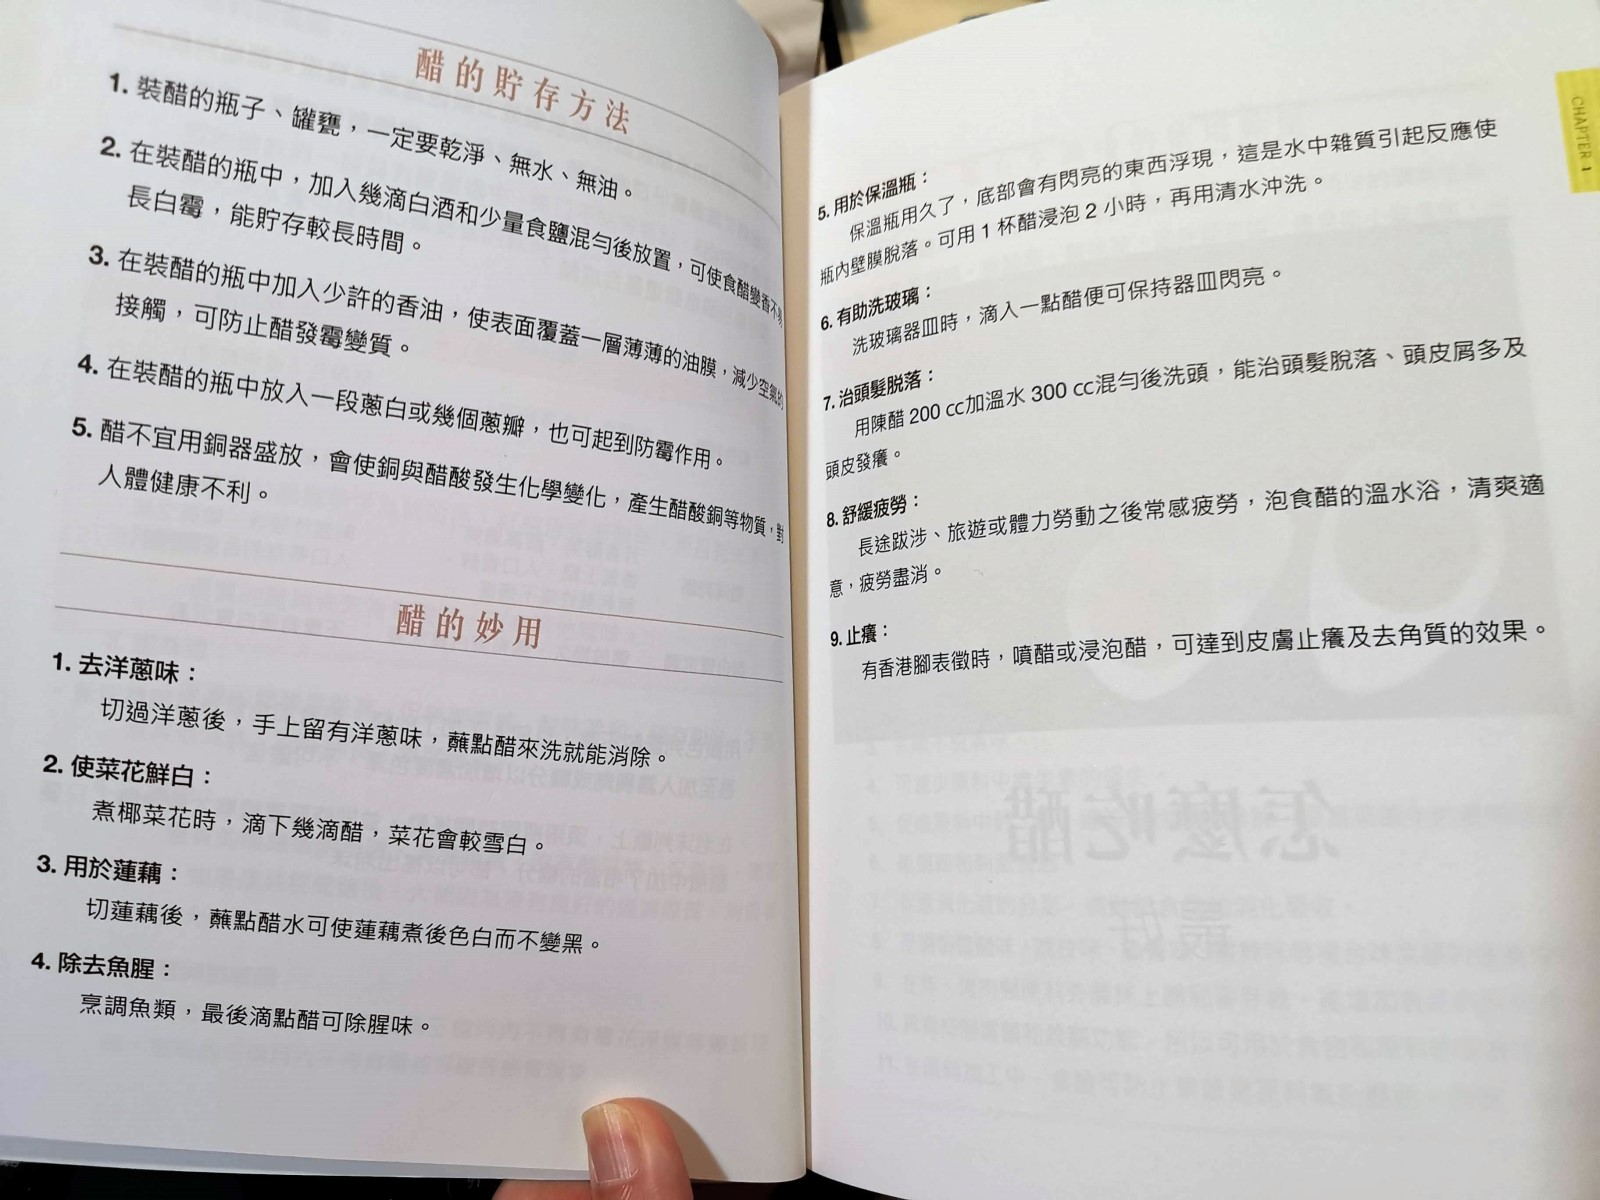 醋的貯存方法
1. 裝醋的瓶子、罐甕，一定要乾淨、無水、無油。
2. 在裝醋的瓶中，加入幾滴白酒和少量食鹽混勻後放置，可使食醋變香不易
長白霉，能貯存較長時間。
3. 在裝醋的瓶中加入少許的香油，使表面覆蓋一層薄薄的油膜，減少空氣的
接觸，可防止醋發霉變質。
4. 在裝醋的瓶中放入一段蔥白或幾個蔥瓣，也可起到防霉作用。
5. 醋不宜用銅器盛放，會使銅與醋酸發生化學變化，產生醋酸銅等物質，對
人體健康不利。
醋的妙用
1. 去洋蔥味：
切過洋蔥後，手上留有洋蔥味，蘸點醋來洗就能消除。
2. 使菜花鮮白：
煮椰菜花時，滴下幾滴醋，菜花會較雪白。
3. 用於蓮藕：
切蓮藕後，蘸點醋水可使蓮藕煮後色白而不變黑。
4. 除去魚腥：
烹調魚類，最後滴點醋可除腥味。
CHAPTER 1
5. 用於保溫瓶：
保溫瓶用久了，底部會有閃亮的東西浮現，這是水中雜質引起反應使
瓶內壁膜脫落。可用 1 杯醋浸泡 2 小時，再用清水沖洗。
6. 有助洗玻璃：
洗玻璃器皿時，滴入一點醋便可保持器皿閃亮。
7. 治頭髮脫落：
用陳醋 200 cc加溫水 300 cc混勻後洗頭，能治頭髮脫落、頭皮屑多及
頭皮發癢。
8. 舒緩疲勞：
長途跋涉、旅遊或體力勞動之後常感疲勞，泡食醋的溫水浴，清爽適
意，疲勞盡消。
9. 止癢：
有香港腳表徵時，噴醋或浸泡醋，可達到皮膚止癢及去角質的效果。